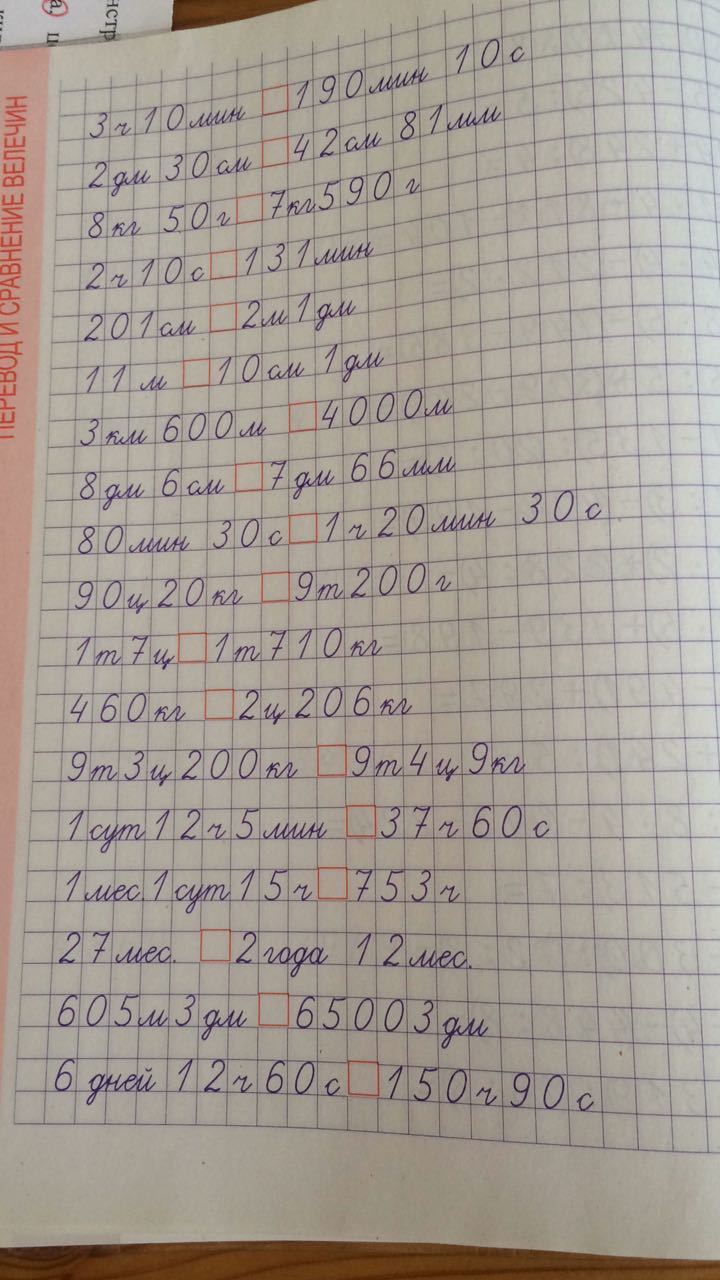 нстр
а,
ПЕРЕВОД И СРАВНЕНИЕ ВЕЛЕЧИН
3ч10мин □ 190мин 10с
2дм 30см □ 42см 81мм
8кг 50г □ 7кг590г
2ч10с □ 131мин
201см □ 2м1дм
11м □ 10см 1дм
3км 600м □ 4000м
8дм 6см □ 7дм 66мм
80мин 30с □ 1ч20мин 30с
90ц20кг □ 9т200г
1т7ц □ 1т710кг
460кг □ 2ц206кг
9т3ц200кг □ 9т4ц9кг
1сут12ч5мин □ 37ч60с
1мес.1сут15ч □ 753ч
27мес. □ 2года 12мес.
605м3дм □ 65003дм
6 дней 12ч60с □ 150ч90с